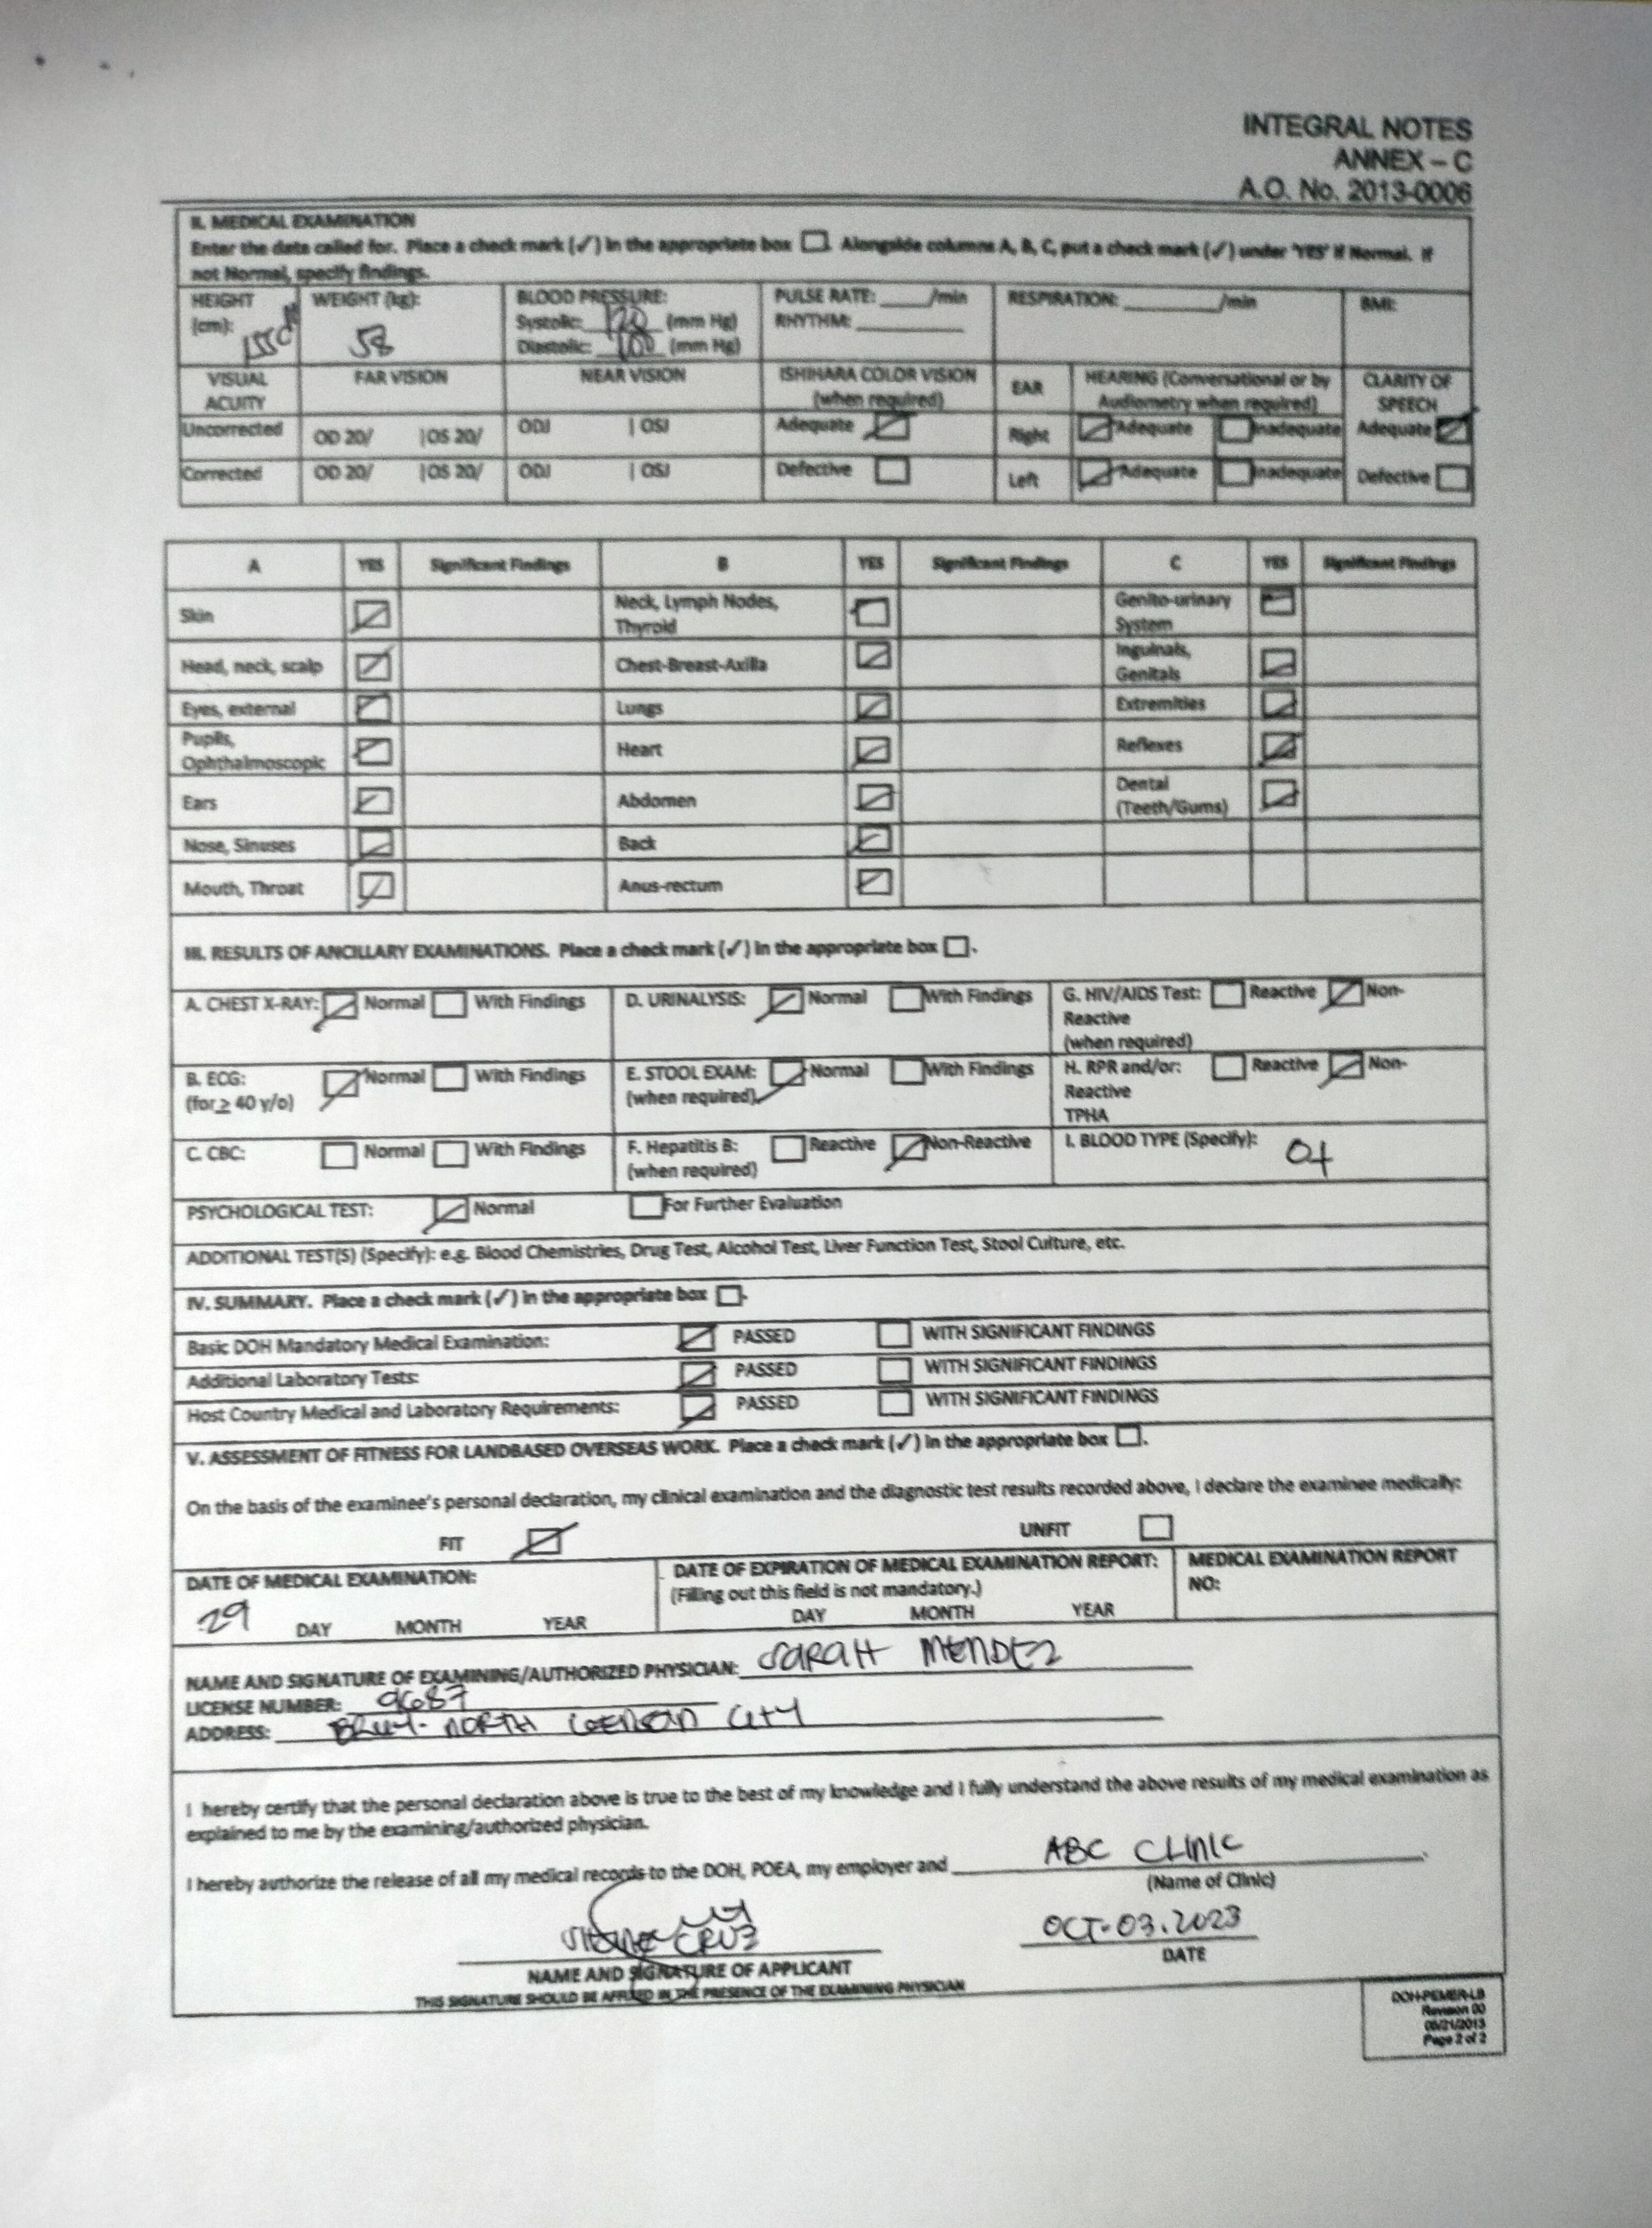 INTEGRAL NOTES
ANNEX – C
A.O. No. 2013-0006
II. MEDICAL EXAMINATION
Enter the data called for. Place a check mark (✓) in the appropriate box ☐. Alongside columns A, B, C, put a check mark (✓) under 'YES' if Normal. If
not Normal, specify findings.
HEIGHT (cm): WEIGHT (kg): 58
BLOOD PRESSURE:
Systolic: 120 (mm Hg)
Diastolic: 100 (mm Hg)
PULSE RATE: ____/min
RHYTHM: ____
RESPIRATION: ____/min
BMI:
VISUAL ACUITY FAR VISION NEAR VISION ISHIHARA COLOR VISION (when required) EAR HEARING (Conversational or by Audiometry when required) CLARITY OF SPEECH
Uncorrected OD 20/ |OS 20/ ODJ | OSJ Adequate ☑ Right ☑ Adequate ☐ Inadequate Adequate ☑
Corrected OD 20/ |OS 20/ ODJ | OSJ Defective ☐ Left ☑ Adequate ☐ Inadequate Defective ☐
A YES Significant Findings B YES Significant Findings C YES Significant Findings
Skin ☑ Neck, Lymph Nodes, Thyroid ☑ Genito-urinary System ☑
Head, neck, scalp ☑ Chest-Breast-Axilla ☑ Inguinals, Genitals ☑
Eyes, external ☑ Lungs ☑ Extremities ☑
Pupils, Ophthalmoscopic ☑ Heart ☑ Reflexes ☑
Ears ☑ Abdomen ☑ Dental (Teeth/Gums) ☑
Nose, Sinuses ☑ Back ☑
Mouth, Throat ☑ Anus-rectum ☑
III. RESULTS OF ANCILLARY EXAMINATIONS. Place a check mark (✓) in the appropriate box ☐.
A. CHEST X-RAY: ☑ Normal ☐ With Findings D. URINALYSIS: ☑ Normal ☐ With Findings G. HIV/AIDS Test: ☐ Reactive ☑ Non-
Reactive
(when required)
B. ECG: ☑ Normal ☐ With Findings E. STOOL EXAM: ☑ Normal ☐ With Findings H. RPR and/or: ☐ Reactive ☑ Non-
(for ≥ 40 y/o) (when required) Reactive
TPHA
C. CBC: ☐ Normal ☐ With Findings F. Hepatitis B: ☐ Reactive ☑ Non-Reactive I. BLOOD TYPE (Specify): O+
(when required)
PSYCHOLOGICAL TEST: ☑ Normal ☐ For Further Evaluation
ADDITIONAL TEST(S) (Specify): e.g. Blood Chemistries, Drug Test, Alcohol Test, Liver Function Test, Stool Culture, etc.
IV. SUMMARY. Place a check mark (✓) in the appropriate box ☐.
Basic DOH Mandatory Medical Examination: ☑ PASSED ☐ WITH SIGNIFICANT FINDINGS
Additional Laboratory Tests: ☑ PASSED ☐ WITH SIGNIFICANT FINDINGS
Host Country Medical and Laboratory Requirements: ☑ PASSED ☐ WITH SIGNIFICANT FINDINGS
V. ASSESSMENT OF FITNESS FOR LANDBASED OVERSEAS WORK. Place a check mark (✓) in the appropriate box ☐.
On the basis of the examinee's personal declaration, my clinical examination and the diagnostic test results recorded above, I declare the examinee medically:
FIT ☑ UNFIT ☐
DATE OF MEDICAL EXAMINATION: DATE OF EXPIRATION OF MEDICAL EXAMINATION REPORT: MEDICAL EXAMINATION REPORT
(Filling out this field is not mandatory.) NO:
29 DAY MONTH YEAR DAY MONTH YEAR
NAME AND SIGNATURE OF EXAMINING/AUTHORIZED PHYSICIAN: SARAH MENDEZ
LICENSE NUMBER: 9687
ADDRESS: NORTH CITY
I hereby certify that the personal declaration above is true to the best of my knowledge and I fully understand the above results of my medical examination as
explained to me by the examining/authorized physician.
I hereby authorize the release of all my medical records to the DOH, POEA, my employer and ABC CLINIC.
(Name of Clinic)
CRUZ OCT-03.2023
NAME AND SIGNATURE OF APPLICANT DATE
THIS SIGNATURE SHOULD BE AFFIXED IN THE PRESENCE OF THE EXAMINING PHYSICIAN
DOH-PEMER-LB
Revision 00
06/21/2013
Page 2 of 2